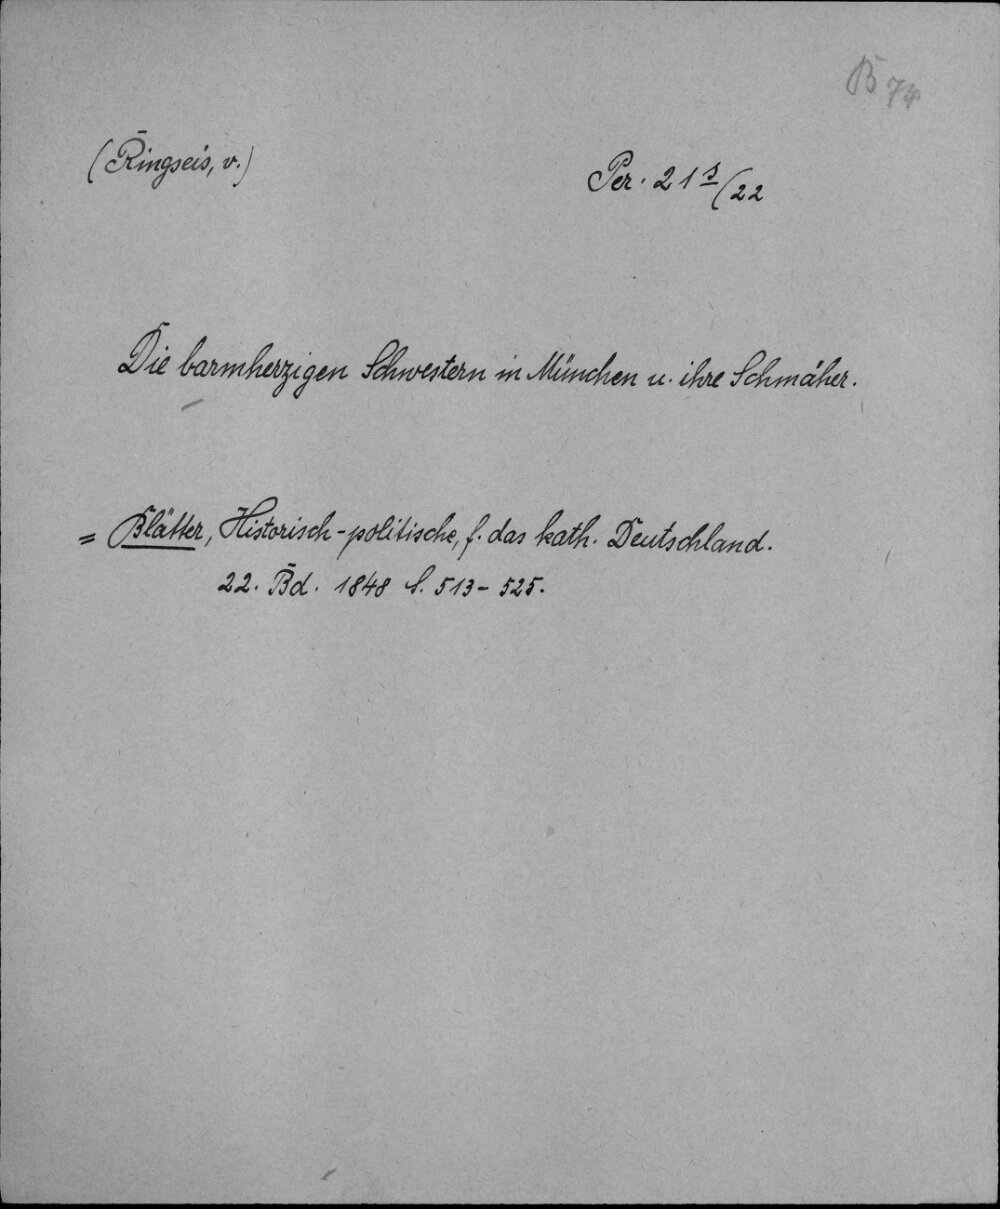 B 74
(Ringseis, v.)
Per. 21 s/22
Die barmherzigen Schwestern in München u. ihre Schmäher.
= Blätter, Historisch-politische, f. das kath. Deutschland.
22. Bd. 1848 S. 513-525.